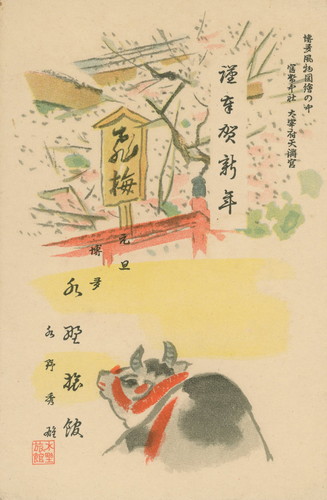 博多風物図絵の中
官幣中社 太宰府天満宮
謹奉賀新年
飛梅
元旦
博多
水野旅館
水野秀雄
水野旅館